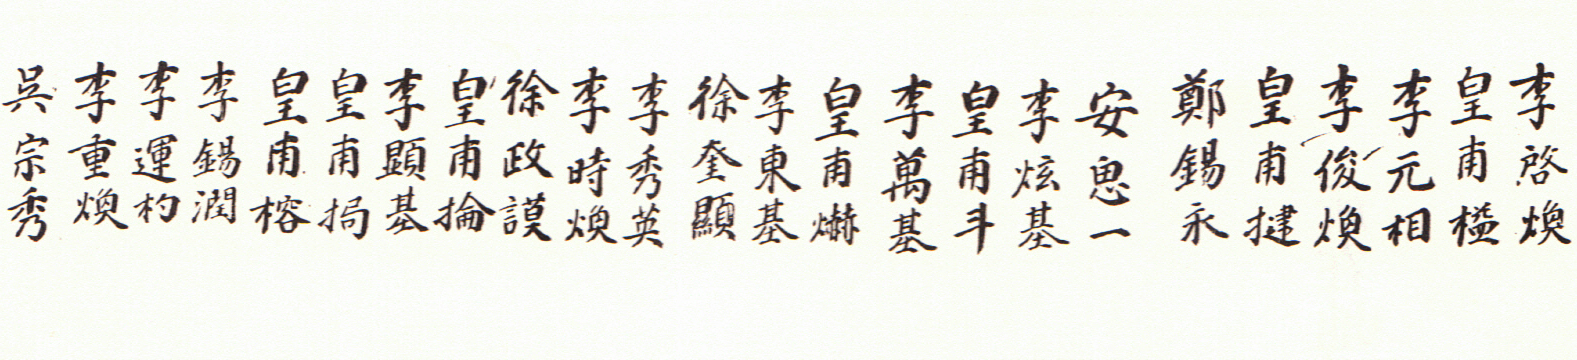 李啓煥
皇甫榏
李元相
李俊煥
皇甫揵
鄭錫永
安思一
李炫基
皇甫斗
李萬基
皇甫爀
李東基
徐奎顯
李秀英
李時煥
徐政謨
皇甫掄
李顯基
皇甫挶
皇甫榕
李錫潤
李運杓
李重煥
吳宗秀